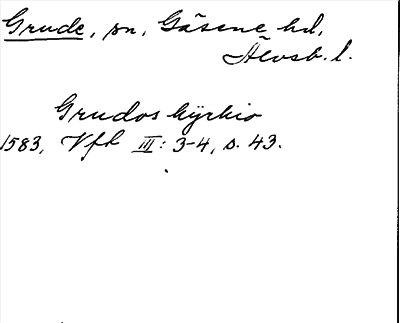 Grude, sn, Gäsene hd,
Älvsb. l.
Grudos kyrkio
1583, Vfh III: 3-4, s. 43.